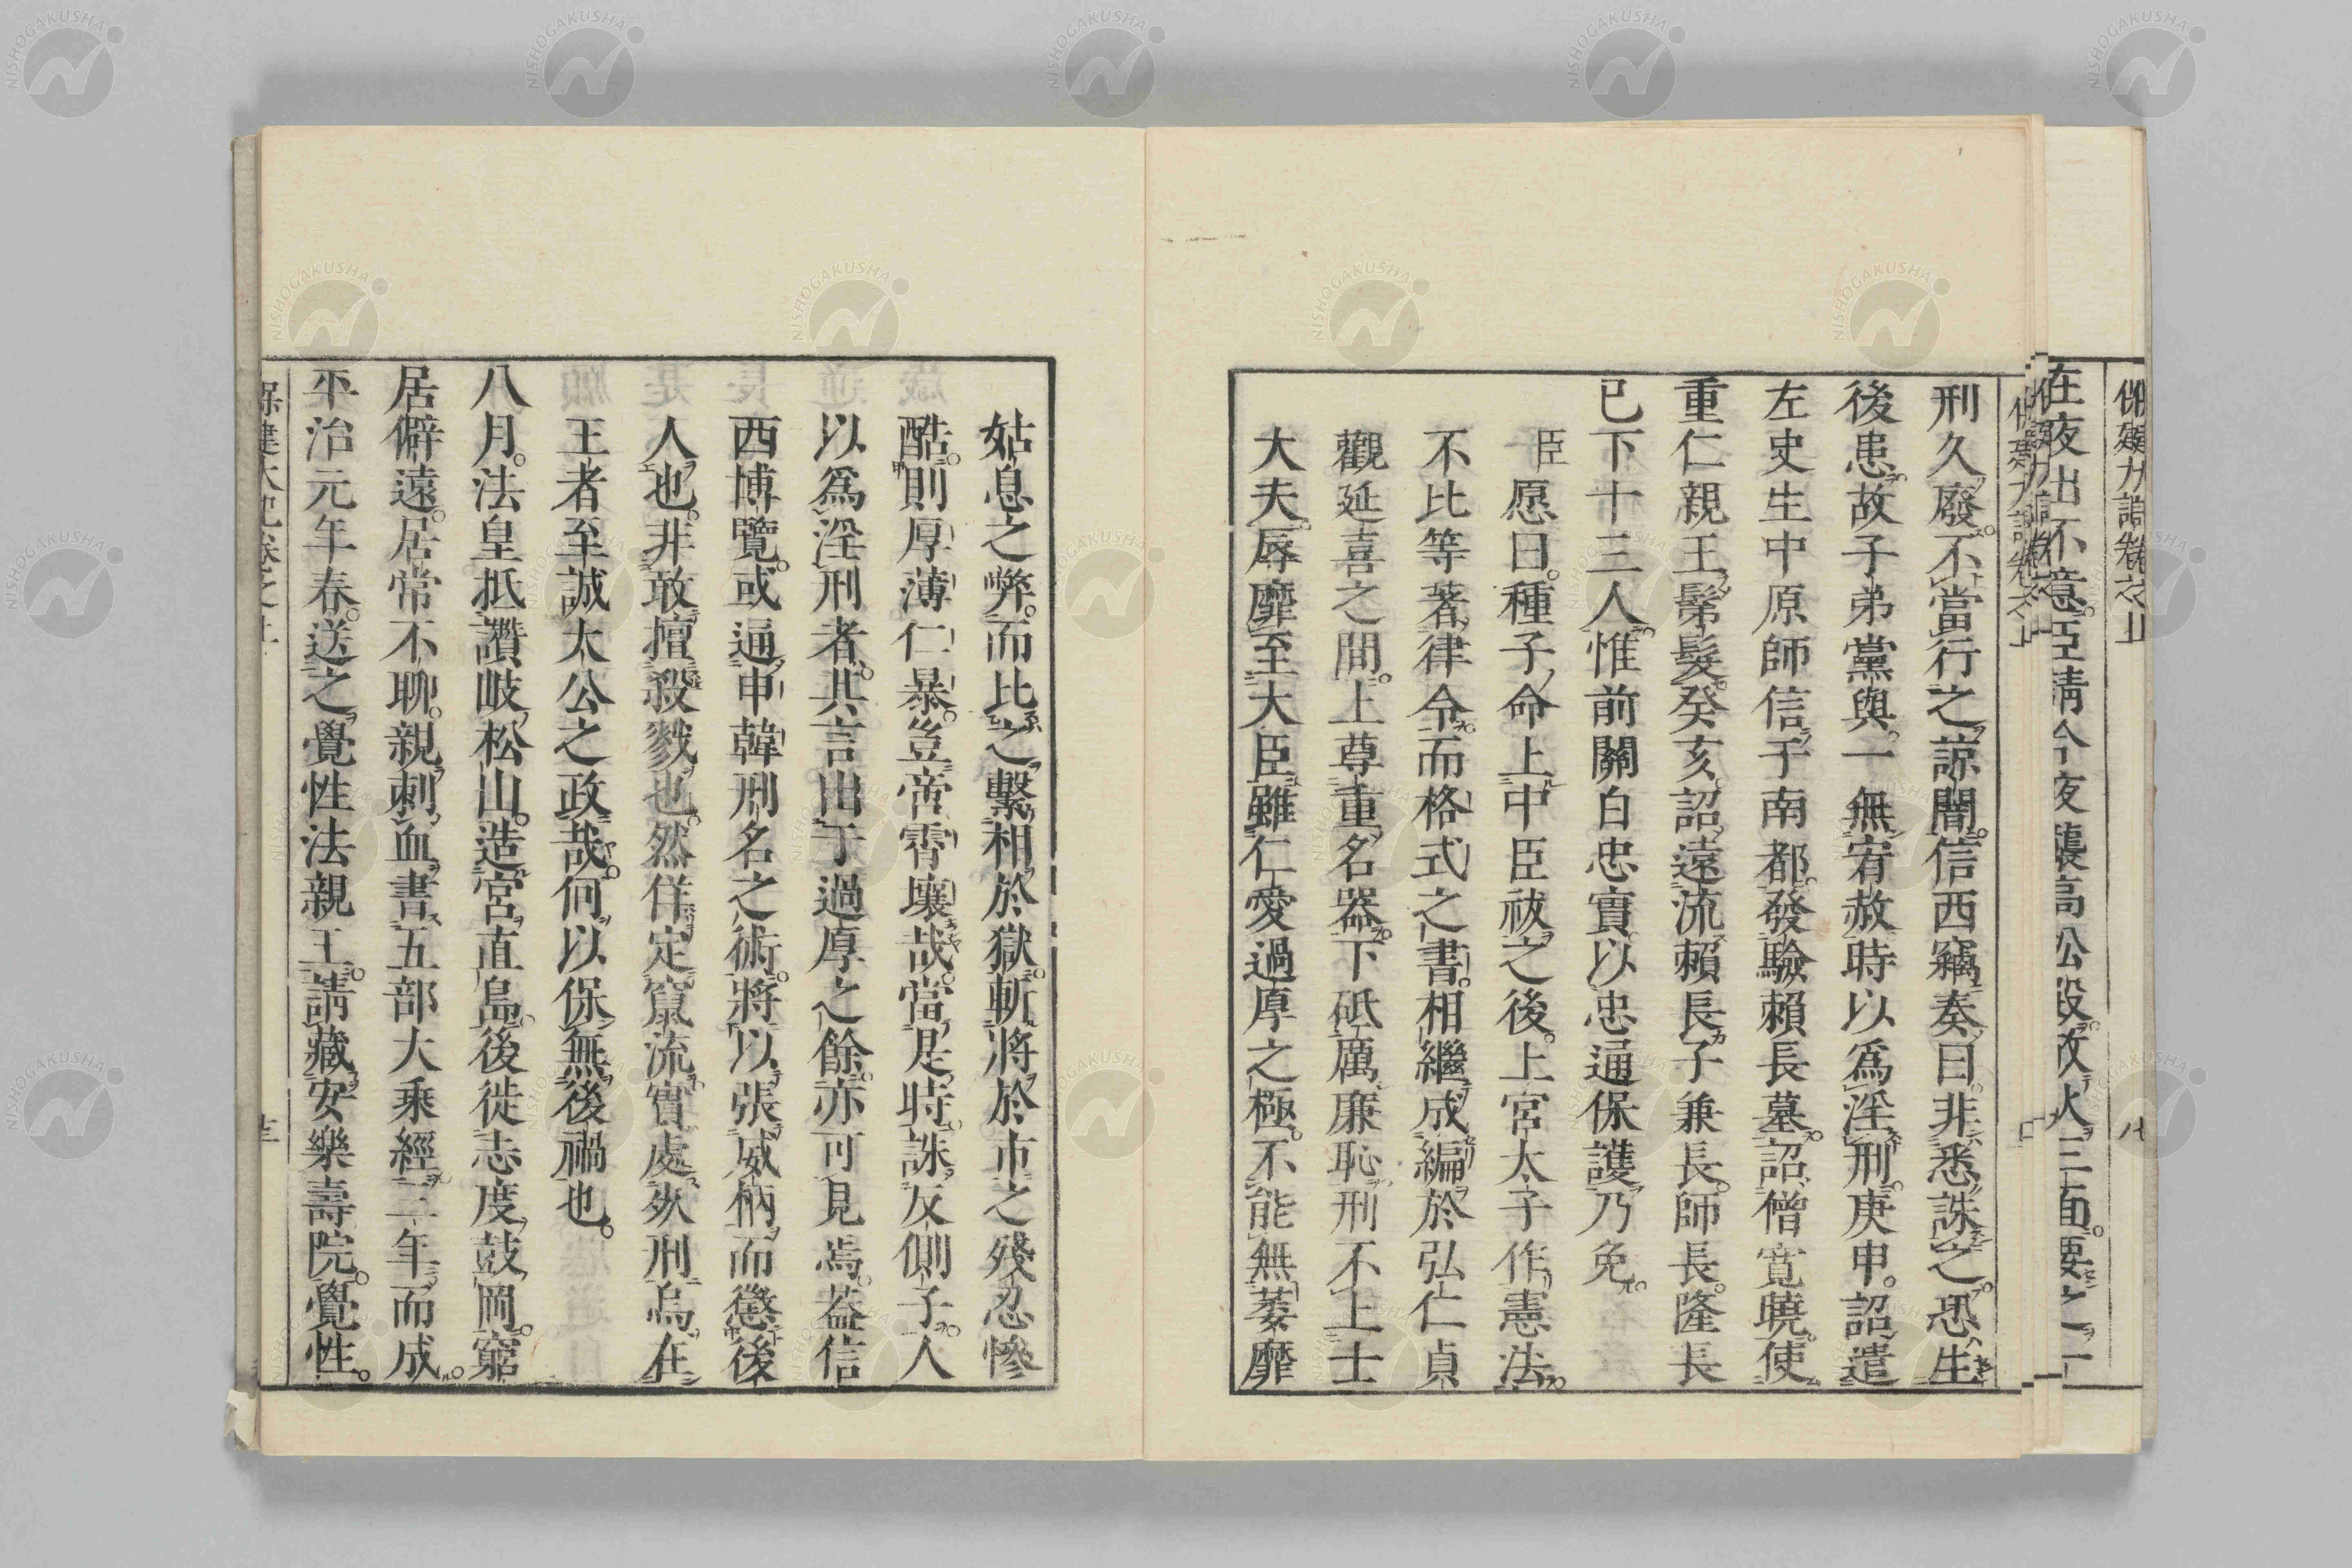 在夜出不意臣請今夜襲高松殿。放火三面。要之一
刑久廢。不當行之諒闇。信西竊奏曰。非悉誅之。恐生
後患。故子弟黨與一無宥赦。時以爲淫刑。庚申。詔遣
左史生中原師信于南都。發驗賴長墓。詔僧寛曉。使
重仁親王髡髮。癸亥。詔遠流賴長子兼長。師長。隆長
已下十三人。惟前關白忠實以忠通保護乃免。
臣愿曰。種子命上中臣祓之後。上宮太子作憲法。
不比等著律令。而格式之書。相繼成編於弘仁貞
觀延喜之間。上尊重名器。下砥厲廉恥。刑不上士
大夫。辱靡至大臣。雖仁愛過厚之極。不能無萎靡
姑息之弊。而比之繫相於獄。斬將於市之殘忍慘
酷。則厚薄仁暴。豈啻霄壤哉。當是時。誅反側子。人
以爲淫刑者。其言出于過厚之餘。亦可見焉。蓋信
西博覽。或通申韓刑名之術。將以張威柄。而懲後
人也。非敢擅殺戮也。然佯定竄流。實處死刑。烏在
王者至誠太公之政哉。何以保無後禍也。
八月。法皇抵讚岐松山。造宮直島。後徙志度鼓岡。窮
居僻遠。居常不聊。親刺血。書五部大乘經。三年而成。
平治元年春。送之覺性法親王。請藏安樂壽院。覺性。
保建大記卷之上